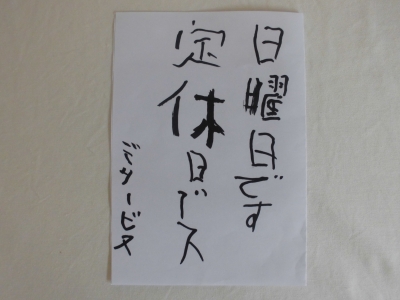 日曜日です
定休日デス
ジィサービス